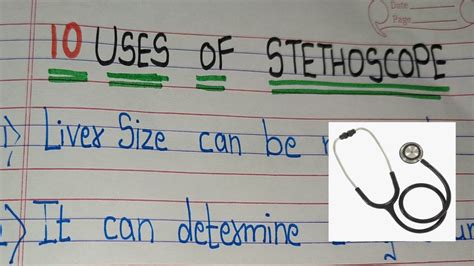 Date
Page
10 USES OF STETHOSCOPE
1) Liver Size can be
It can determine